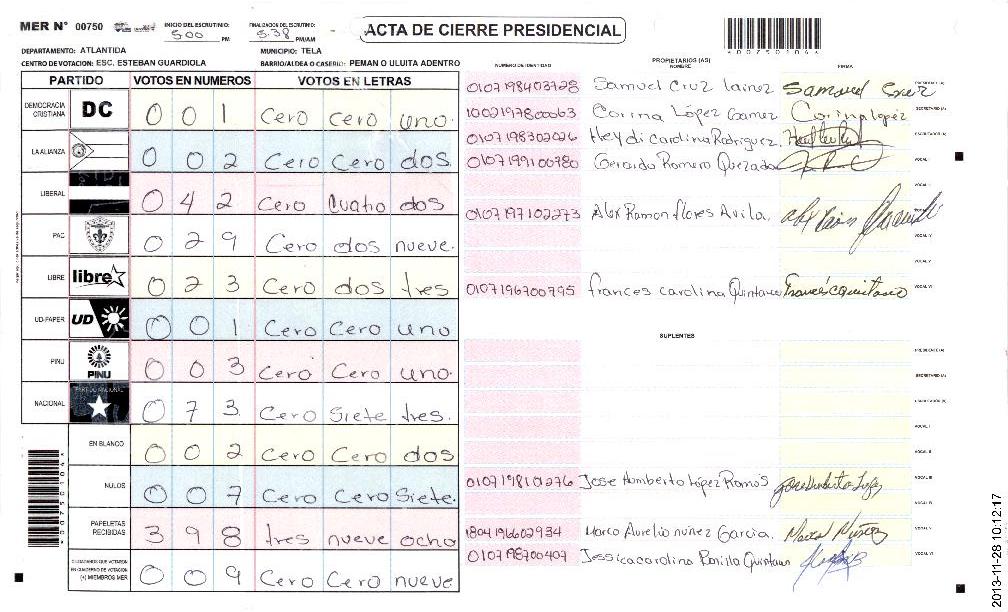 MER N° 00750 INICIO DEL ESCRUTINIO: 5:00 PM FINALIZACION DEL ESCRUTINIO: 5:38 PM/AM ACTA DE CIERRE PRESIDENCIAL
DEPARTAMENTO: ATLANTIDA MUNICIPIO: TELA
CENTRO DE VOTACION: ESC. ESTEBAN GUARDIOLA BARRIO/ALDEA O CASERIO: PEMAN O ULUITA ADENTRO
PARTIDO VOTOS EN NUMEROS VOTOS EN LETRAS
DEMOCRACIA CRISTIANA DC 0 0 1 Cero cero uno.
LA ALIANZA 0 0 2 Cero Cero dos.
LIBERAL 0 4 2 Cero Cuatro dos
PAC 0 2 9 Cero dos nueve.
LIBRE libre 0 2 3 Cero dos tres
UD-FAPER UD 0 0 1 Cero Cero uno
PINU PINU 0 0 3 Cero Cero uno.
NACIONAL PARTIDO NACIONAL 0 7 3 Cero Siete tres.
EN BLANCO 0 0 2 Cero Cero dos
NULOS 0 0 7 Cero Cero Siete.
PAPELETAS RECIBIDAS 3 9 8 tres nueve ocho
CIUDADANOS QUE VOTARON EN CUADERNO DE VOTACION (+) MIEMBROS MER 0 0 9 Cero Cero nueve
PROPIETARIOS (AS)
NUMERO DE IDENTIDAD NOMBRE FIRMA
0107198403728 Samuel Cruz Lainez Samuel Cruz PRESIDENTE (A)
Corina López Gamez Corina lopez SECRETARIO (A)
0107198302026 Heydi Carolina Rodriguez. ESCRUTADOR (A)
0107199100780 Gerardo Romero Quezada VOCAL I
VOCAL II
0107197102273 Alex Ramon flores Avila.
VOCAL IV
VOCAL V
0107196700795 frances carolina Quintana VOCAL VI
SUPLENTES
PRESIDENTE (A)
SECRETARIO (A)
ESCRUTADOR (A)
VOCAL I
VOCAL II
Jose Humberto López Ramos VOCAL III
VOCAL IV
1804196602934 Marco Aurelio nuñez Garcia. Marco Nuñez VOCAL V
0107198700407 Jessica carolina Bonilla Quintana VOCAL VI
2013-11-28 10:12:17